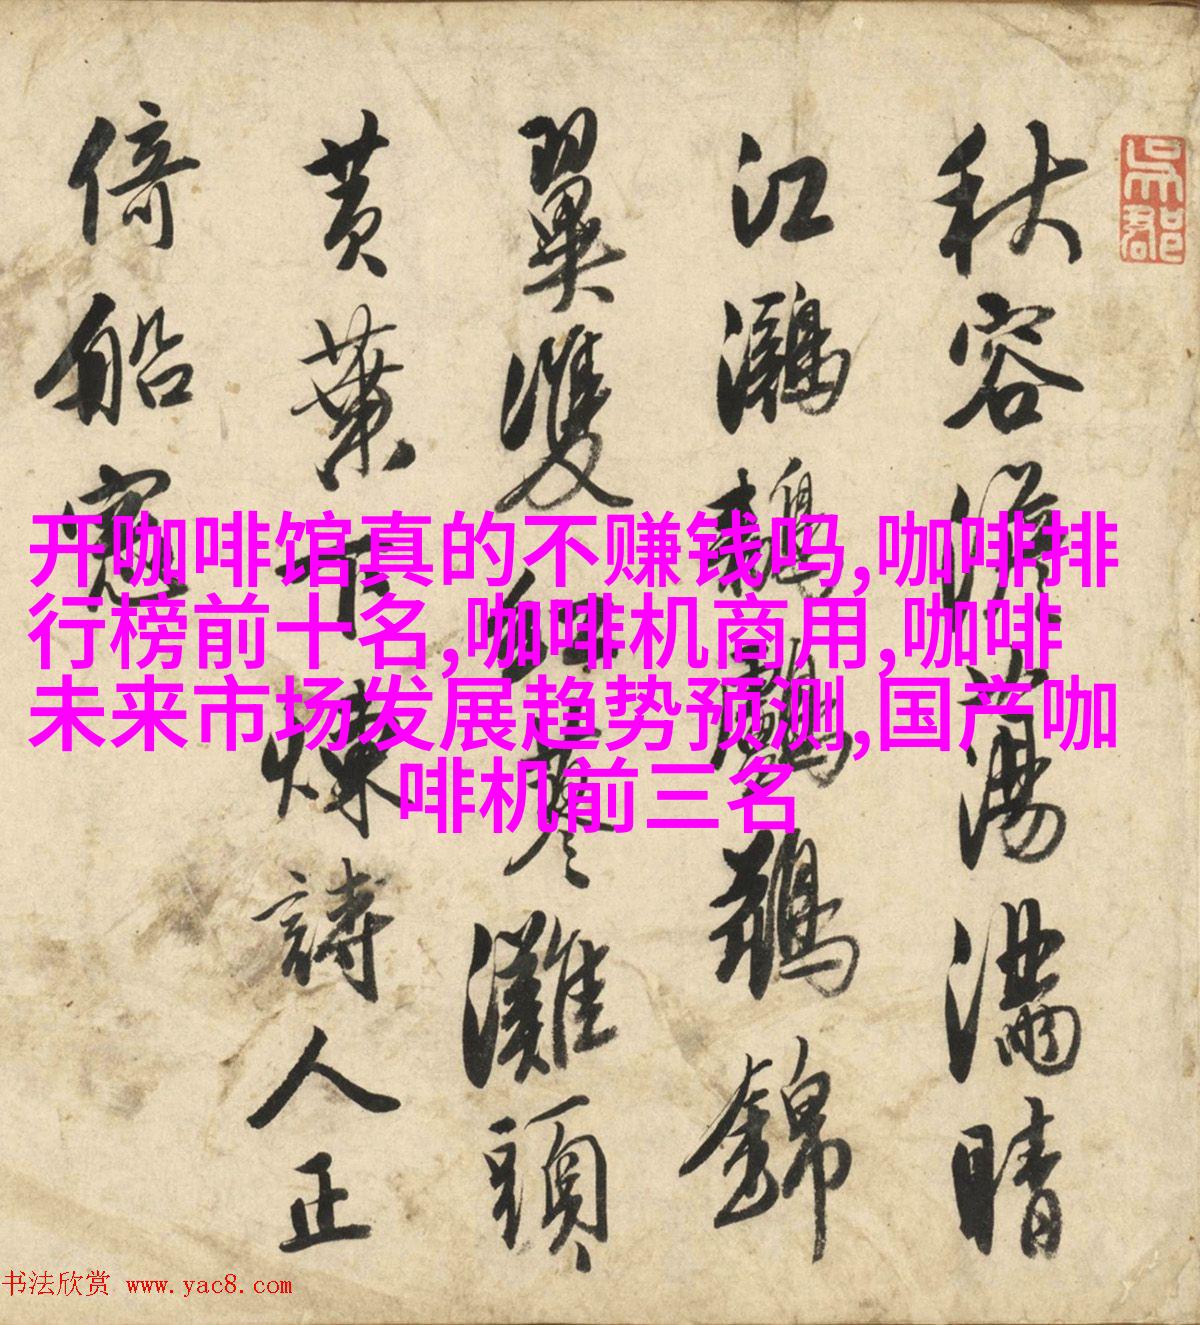 吳郡
秋容澹蕩滿晴
江鸂鶒鸕鶿錦
翼雙紅蓼灘頭
黃葉下煉詩人正
倚船窓
开咖啡馆真的不赚钱吗,咖啡排
行榜前十名,咖啡机商用,咖啡
未来市场发展趋势预测,国产咖
啡机前三名
书法欣赏 www.yac8.com